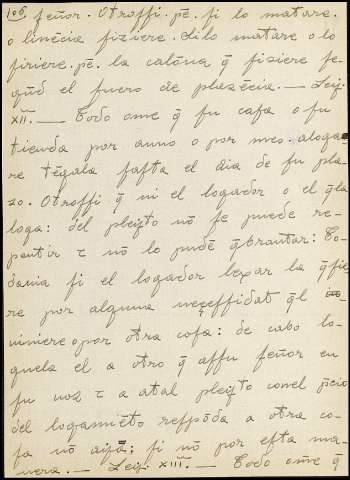 106, feñor. Otroffi. pē. fi lo matare.
o linēcia fiziere. Silo matare o lo
firiere. pē. la calōna q̄ fiziere fe-
gūd el fuero de plazēcia. — Leij.
XII. — Todo ome q̄ fu cafa o fu
tienda por anno o por mes aloga-
re tēgala fafta el dia de fu pla-
zo. Otroffi q̄ ni el logador o el q̄ la
loga: del pleyto nō fe puede re-
pentir τ nō lo pudē q̄brantar: To-
davia fi el logador lexar la q̄fie
re por alguna neçeffidat q̄l
viniere o por otra cofa: de cabo lo-
guela el a otro q̄ affu feñor en
fu voz τ a atal pleyto conel p̄cio
del logamiēto refpōda a otra co-
fa nō aifā: fi nō por efta ma-
nera. — Leij. XIII. — Todo ome q̄